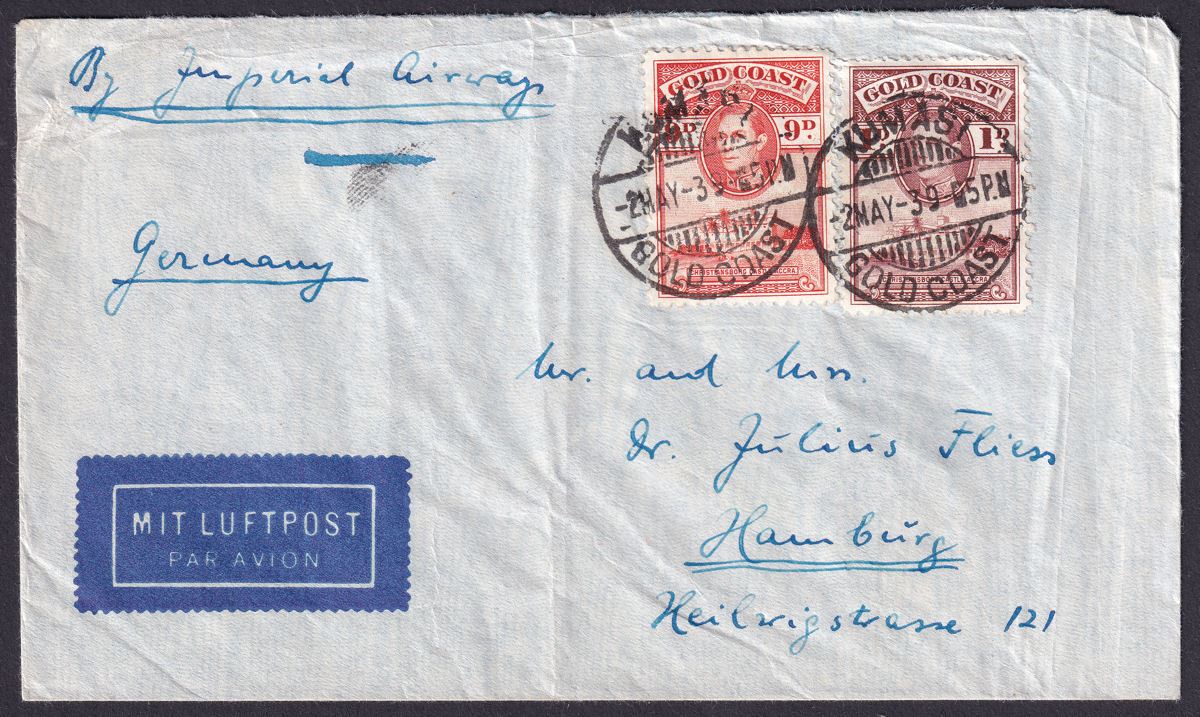 By Imperial Airways
Germany
GOLD COAST
9D 9D
CHRISTIANSBORG CASTLE, ACCRA
GOLD COAST
1D
CHRISTIANSBORG CASTLE, ACCRA
KUMASI
-2MAY-39-5P.M
GOLD COAST
KUMASI
-2MAY-39-5P.M
GOLD COAST
Mr. and Mrs.
Dr. Julius Fliess
Hamburg
Heilwigstrasse 121
MIT LUFTPOST
PAR AVION